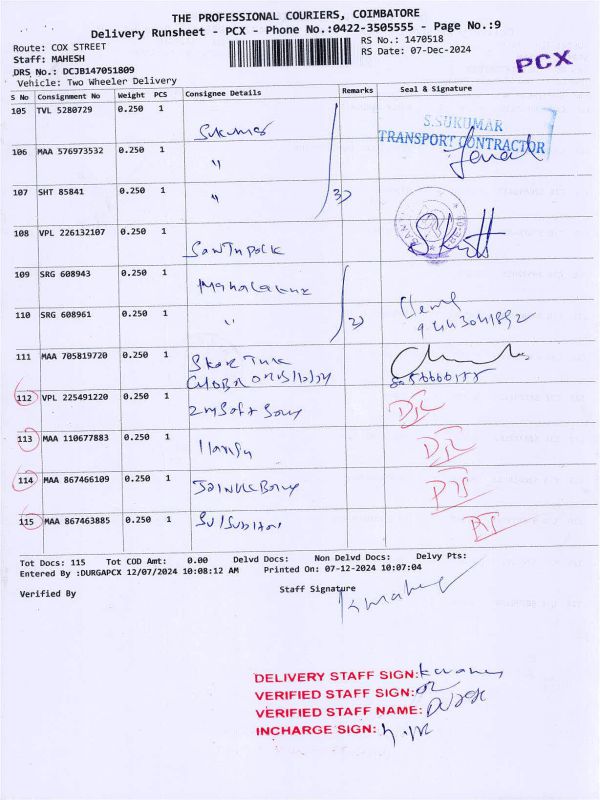 THE PROFESSIONAL COURIERS, COIMBATORE
Delivery Runsheet - PCX - Phone No.:0422-3505555 - Page No.:9
Route: COX STREET
RS No.: 1470518
Staff: MAHESH
RS Date: 07-Dec-2024
DRS No.: DCJB147051809
PCX
Vehicle: Two Wheeler Delivery
S No Consignment No Weight PCS Consignee Details Remarks Seal & Signature
105 TVL 5280729 0.250 1 Sukumar
S.SUKUMAR
TRANSPORT CONTRACTOR
106 MAA 576973532 0.250 1 "
107 SHT 85841 0.250 1 " 3)
108 VPL 226132107 0.250 1
109 SRG 608943 0.250 1
110 SRG 608961 0.250 1 " 2)
111 MAA 705819720 0.250 1
112 VPL 225491220 0.250 1
113 MAA 110677883 0.250 1
114 MAA 867466109 0.250 1
115 MAA 867463885 0.250 1
Tot Docs: 115 Tot COD Amt: 0.00 Delvd Docs: Non Delvd Docs: Delvy Pts:
Entered By :DURGAPCX 12/07/2024 10:08:12 AM Printed On: 07-12-2024 10:07:04
Verified By Staff Signature
DELIVERY STAFF SIGN:
VERIFIED STAFF SIGN:
VERIFIED STAFF NAME:
INCHARGE SIGN: